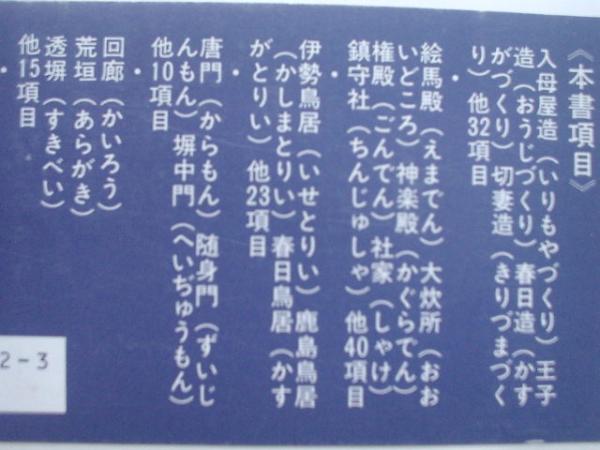 《本書項目》
入母屋造（いりもやづくり）王子
造（おうじづくり）春日造（かす
がづくり）切妻造（きりづまづく
り）他32項目
・
絵馬殿（えまでん）大炊所（おお
いどころ）神楽殿（かぐらでん）
権殿（ごんでん）社家（しゃけ）
鎮守社（ちんじゅしゃ）他40項目
・
伊勢鳥居（いせとりい）鹿島鳥居
（かしまとりい）春日鳥居（かす
がとりい）他23項目
・
唐門（からもん）随身門（ずいじ
んもん）塀中門（へいぢゅうもん）
他10項目
・
回廊（かいろう）
荒垣（あらがき）
透塀（すきべい）
他15項目
・
2-3